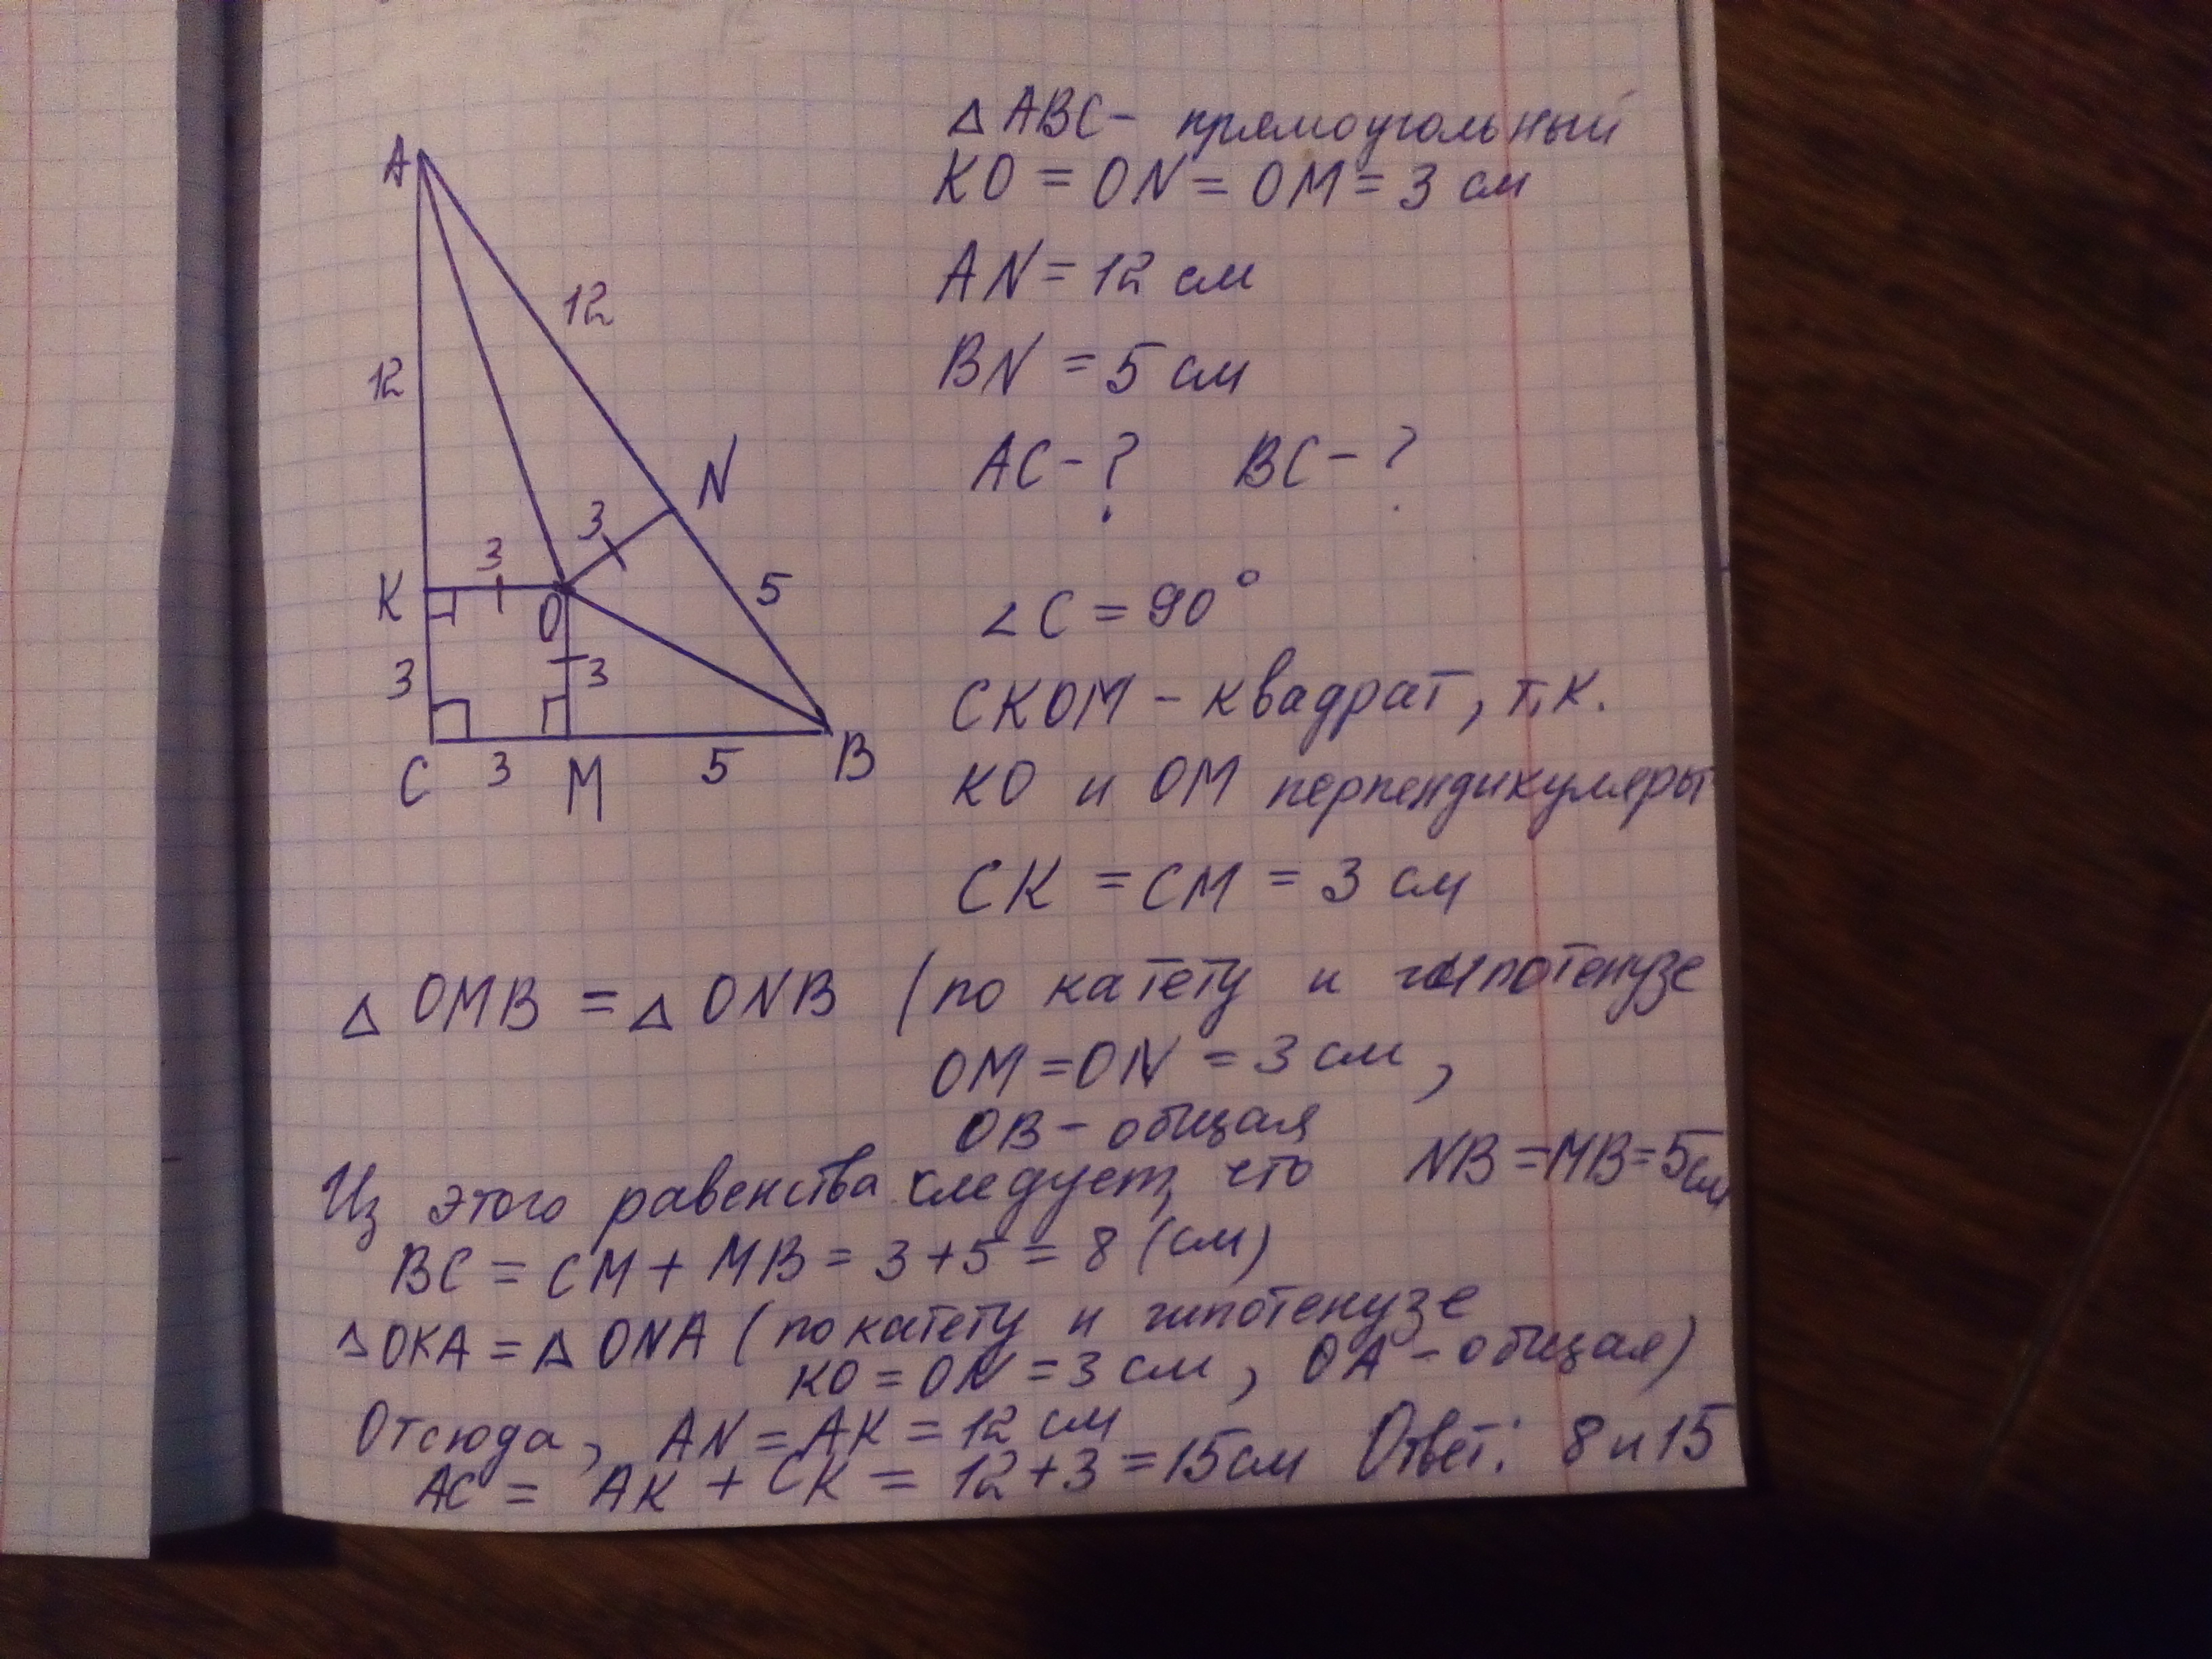 △ ABC - прямоугольный
KO = ON = OM = 3 см
AN = 12 см
BN = 5 см
AC - ? BC - ?
∠C = 90°
CKOM - квадрат, т.к.
KO и OM перпендикуляры
CK = CM = 3 см
A
12
12
N
3
3
K
O
5
3
3
C 3 M 5 B
△ OMB = △ ONB (по катету и гипотенузе
OM = ON = 3 см,
OB - общая
Из этого равенства следует, что NB = MB = 5 см
BC = CM + MB = 3 + 5 = 8 (см)
△ OKA = △ ONA (по катету и гипотенузе
KO = ON = 3 см, OA - общая)
Отсюда, AN = AK = 12 см
AC = AK + CK = 12 + 3 = 15 см Ответ: 8 и 15